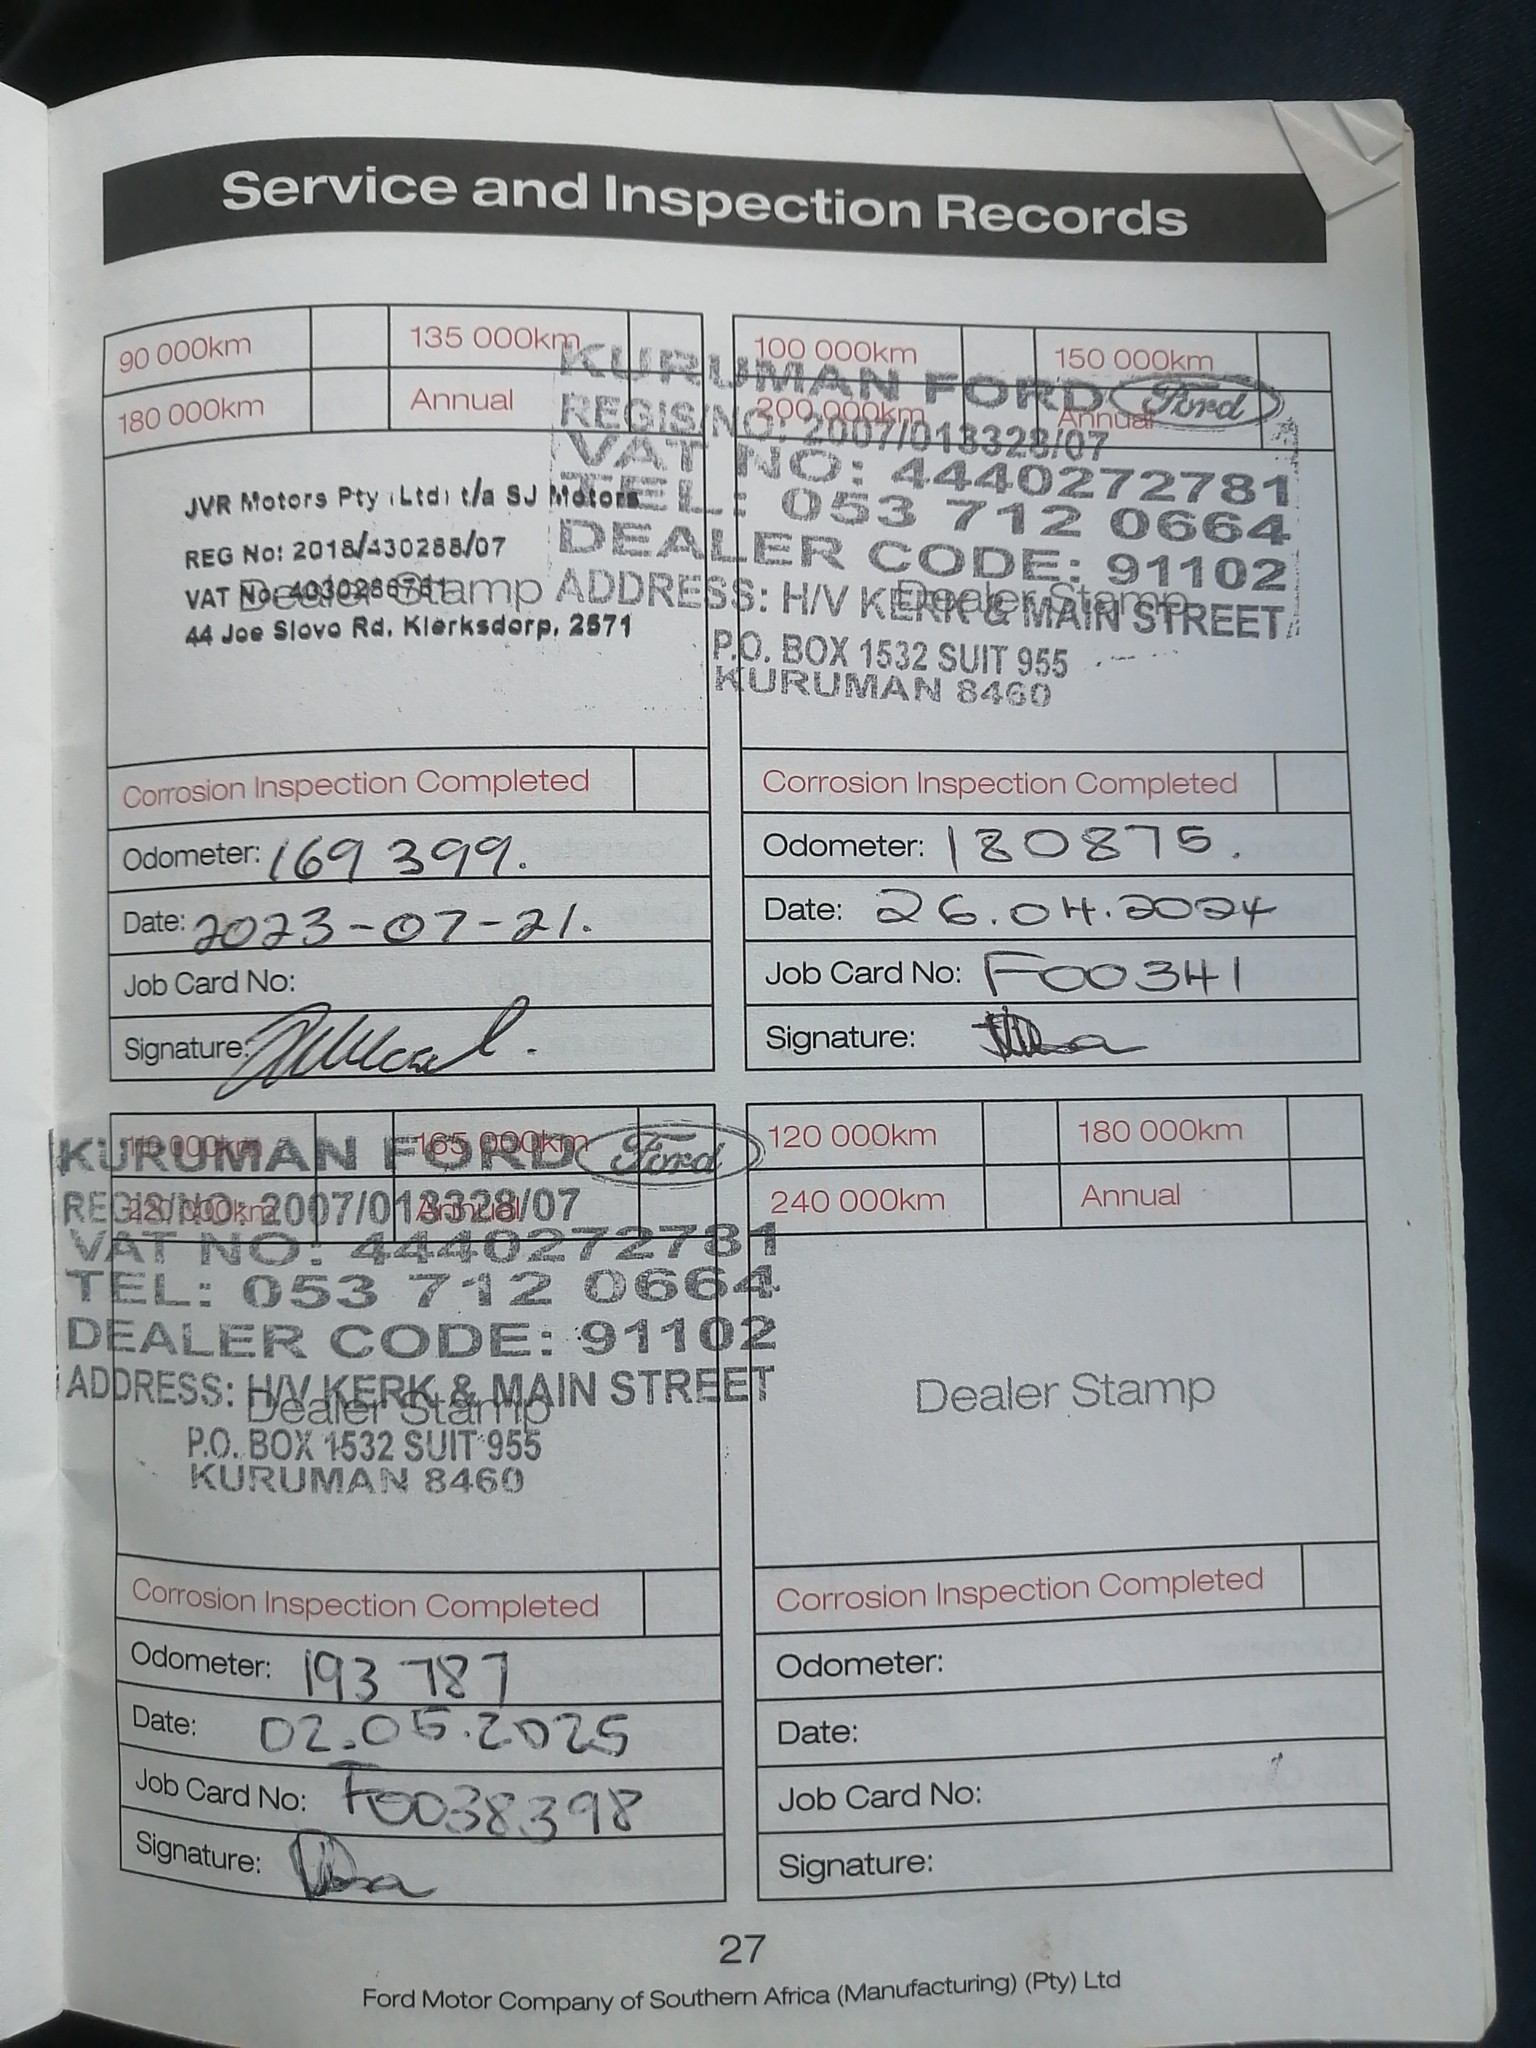 Service and Inspection Records
90 000km
135 000km
180 000km
Annual
JVR Motors Pty (Ltd) t/a SJ Motors
REG No: 2018/430288/07
VAT No: 4030286761
Dealer Stamp
44 Joe Slovo Rd, Klerksdorp, 2571
Corrosion Inspection Completed
Odometer: 169 399.
Date: 2023-07-21.
Job Card No:
Signature:
100 000km
150 000km
200 000km
Annual
KURUMAN FORD Ford
REGIS/NO: 2007/013328/07
VAT NO: 4440272781
TEL: 053 712 0664
DEALER CODE: 91102
ADDRESS: H/V KERK & MAIN STREET
Dealer Stamp
P.O. BOX 1532 SUIT 955
KURUMAN 8460
Corrosion Inspection Completed
Odometer: 180875.
Date: 26.04.2024
Job Card No: F00341
Signature:
110 000km
165 000km
220 000km
Annual
KURUMAN FORD Ford
REGIS/NO: 2007/013328/07
VAT NO: 4440272781
TEL: 053 712 0664
DEALER CODE: 91102
ADDRESS: H/V KERK & MAIN STREET
Dealer Stamp
P.O. BOX 1532 SUIT 955
KURUMAN 8460
Corrosion Inspection Completed
Odometer: 193 787
Date: 02.05.2025
Job Card No: F0038398
Signature:
120 000km
180 000km
240 000km
Annual
Dealer Stamp
Corrosion Inspection Completed
Odometer:
Date:
Job Card No:
Signature:
27
Ford Motor Company of Southern Africa (Manufacturing) (Pty) Ltd